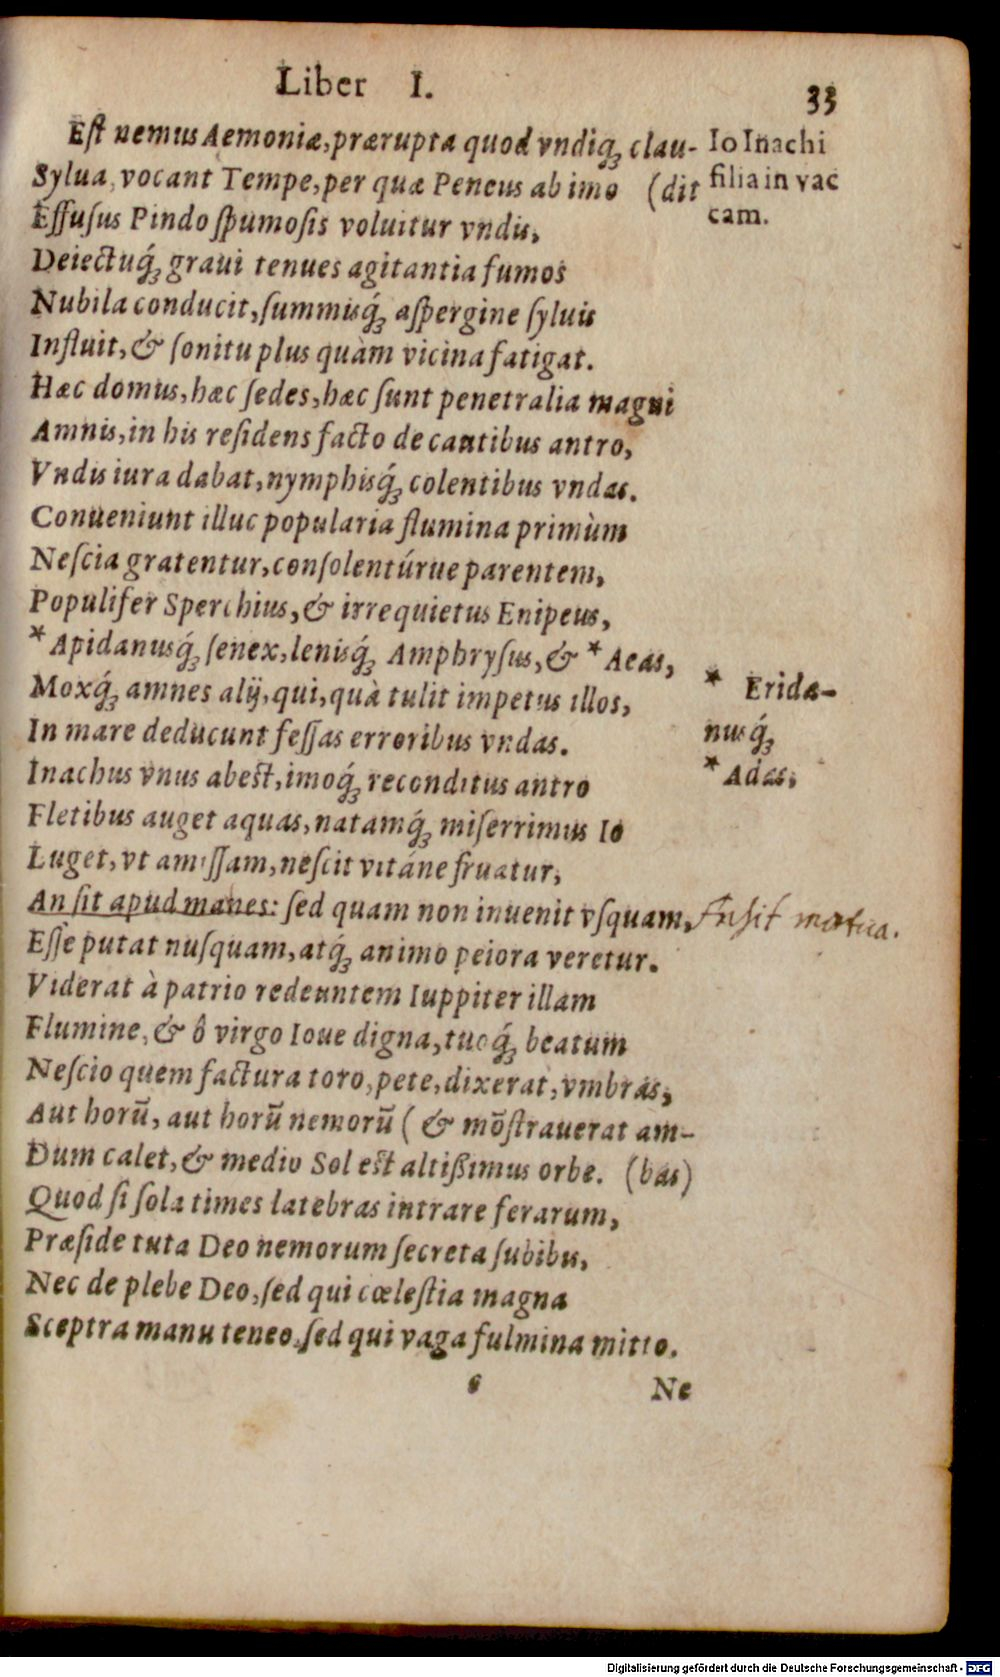 Liber I.
33
Est nemus Aemoniæ, prærupta quod vndiq́; clau-
Sylua, vocant Tempe, per quæ Peneus ab imo (dit
Effusus Pindo spumosis voluitur vndis,
Deiectuq́; graui tenues agitantia fumos
Nubila conducit, summisq́; aspergine syluis
Influit, & sonitu plus quàm vicina fatigat.
Hæc domus, hæc sedes, hæc sunt penetralia magni
Amnis, in his residens facto de cautibus antro,
Vndis iura dabat, nymphisq́; colentibus vndas.
Conueniunt illuc popularia flumina primùm
Nescia gratentur, consolentúrue parentem,
Populifer Sperchius, & irrequietus Enipeus,
*Apidanusq́; senex, lenisq́; Amphrysus, & *Aeas,
Moxq́; amnes alij, qui, quà tulit impetus illos,
In mare deducunt fessas erroribus vndas.
Inachus vnus abest, imoq́; reconditus antro
Fletibus auget aquas, natamq́; miserrimus Io
Luget, vt amissam, nescit vitáne fruatur,
An sit apud manes: sed quam non inuenit vsquam,
Esse putat nusquam, atq́; animo peiora veretur.
Viderat à patrio redeuntem Iuppiter illam
Flumine, & ô virgo Ioue digna, tuoq́; beatum
Nescio quem factura toro, pete, dixerat, vmbras,
Aut horū, aut horū nemorū ( & mōstrauerat am-
Dum calet, & medio Sol est altißimus orbe. (bas)
Quod si sola times latebras intrare ferarum,
Præside tuta Deo nemorum secreta subibis,
Nec de plebe Deo, sed qui cœlestia magna
Sceptra manu teneo, sed qui vaga fulmina mitto.
Ne
Io Inachi
filia in vac
cam.
* Erida-
nusq́;
* Adas,
An sit mortua.
Digitalisierung gefördert durch die Deutsche Forschungsgemeinschaft - DFG